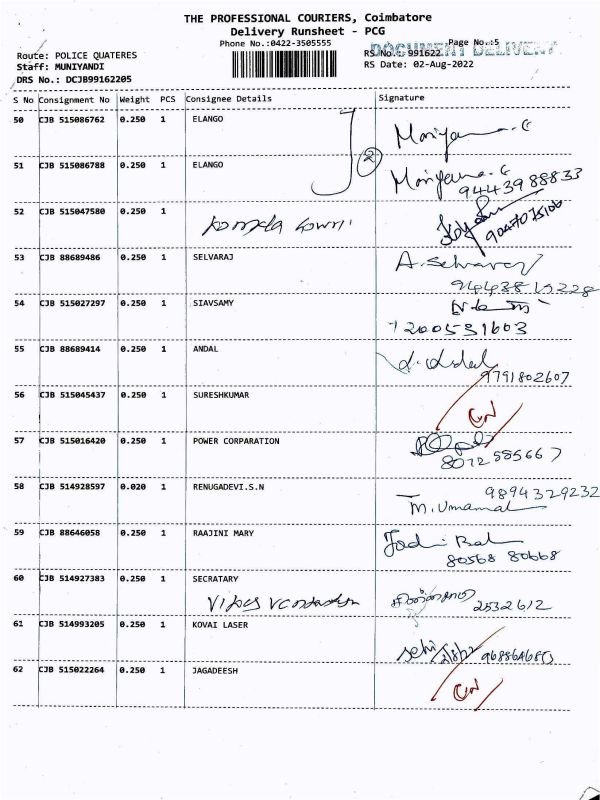 THE PROFESSIONAL COURIERS, Coimbatore
Delivery Runsheet - PCG
Phone No.:0422-3505555
Page No.:5
DOCUMENT DELIVERY
Route: POLICE QUATERES
RS No.: 991622
Staff: MUNIYANDI
RS Date: 02-Aug-2022
DRS No.: DCJB99162205
S No Consignment No Weight PCS Consignee Details Signature
50 CJB 515086762 0.250 1 ELANGO
51 CJB 515086788 0.250 1 ELANGO
2
9443988833
52 CJB 515047580 0.250 1
53 CJB 88689486 0.250 1 SELVARAJ A. Selvaraj
54 CJB 515027297 0.250 1 SIAVSAMY
7200531603
55 CJB 88689414 0.250 1 ANDAL
9791802607
56 CJB 515045437 0.250 1 SURESHKUMAR
57 CJB 515016420 0.250 1 POWER CORPARATION
8072585667
58 CJB 514928597 0.020 1 RENUGADEVI.S.N 9894329232
59 CJB 88646058 0.250 1 RAAJINI MARY
80568 80668
60 CJB 514927383 0.250 1 SECRATARY
2532612
61 CJB 514993205 0.250 1 KOVAI LASER
62 CJB 515022264 0.250 1 JAGADEESH